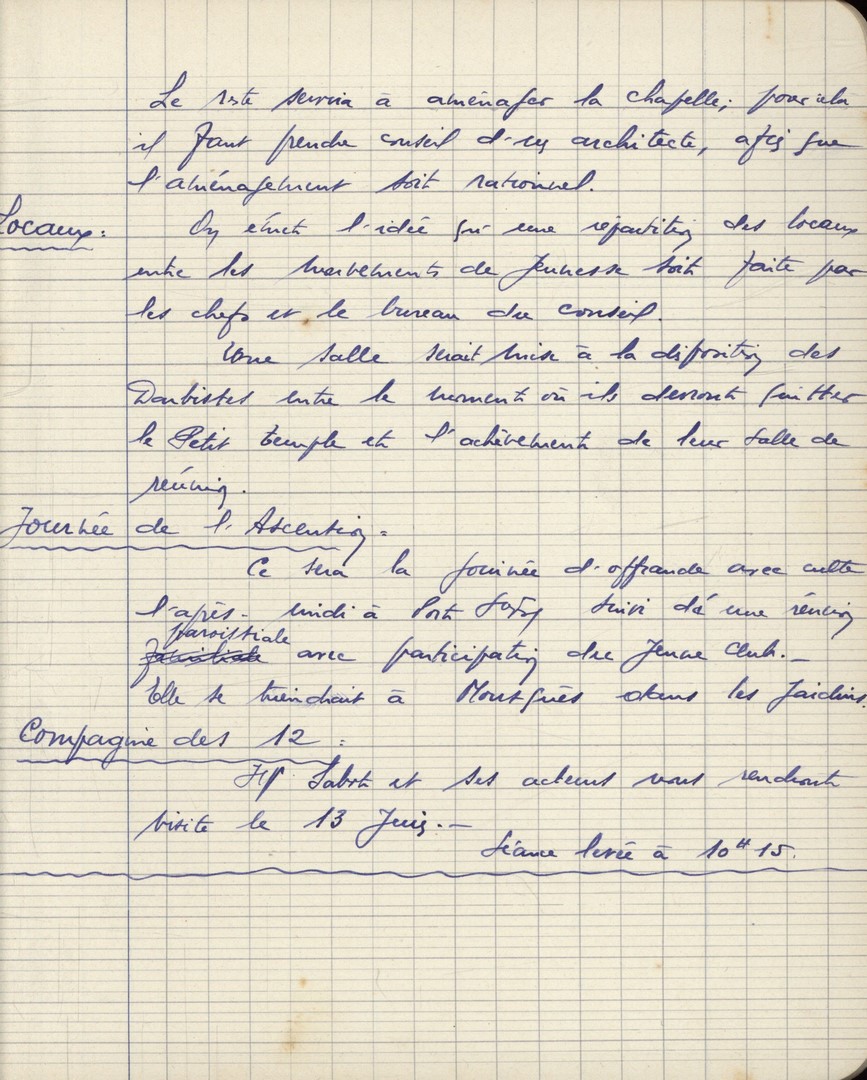 Le reste servira à aménager la chapelle; pour cela
il faut prendre conseil d'un architecte, afin que
l'aménagement soit rationnel.
Locaux: On émet l'idée qu'une répartition des locaux
entre les mouvements de Jeunesse soit faite par
les chefs et le bureau du conseil.
Une salle serait mise à la disposition des
Darbistes entre le moment où ils devront quitter
le Petit temple et l'achèvement de leur salle de
réunion.
Journée de l'Ascention:
Ce sera la journée d'offrande avec culte
l'après-midi à suivi d'une réunion
paroissiale
familiale avec participation du Jeune Club.-
Elle se tiendrait à dans les Jardins.
Compagnie des 12:
et ses acteurs vous rendront
visite le 13 Juin.-
Séance levée à 10H15.